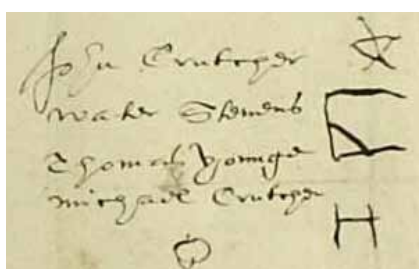 John Crutcher
Water Stevens
Thomas Yonnge
Michael Crutcher
H